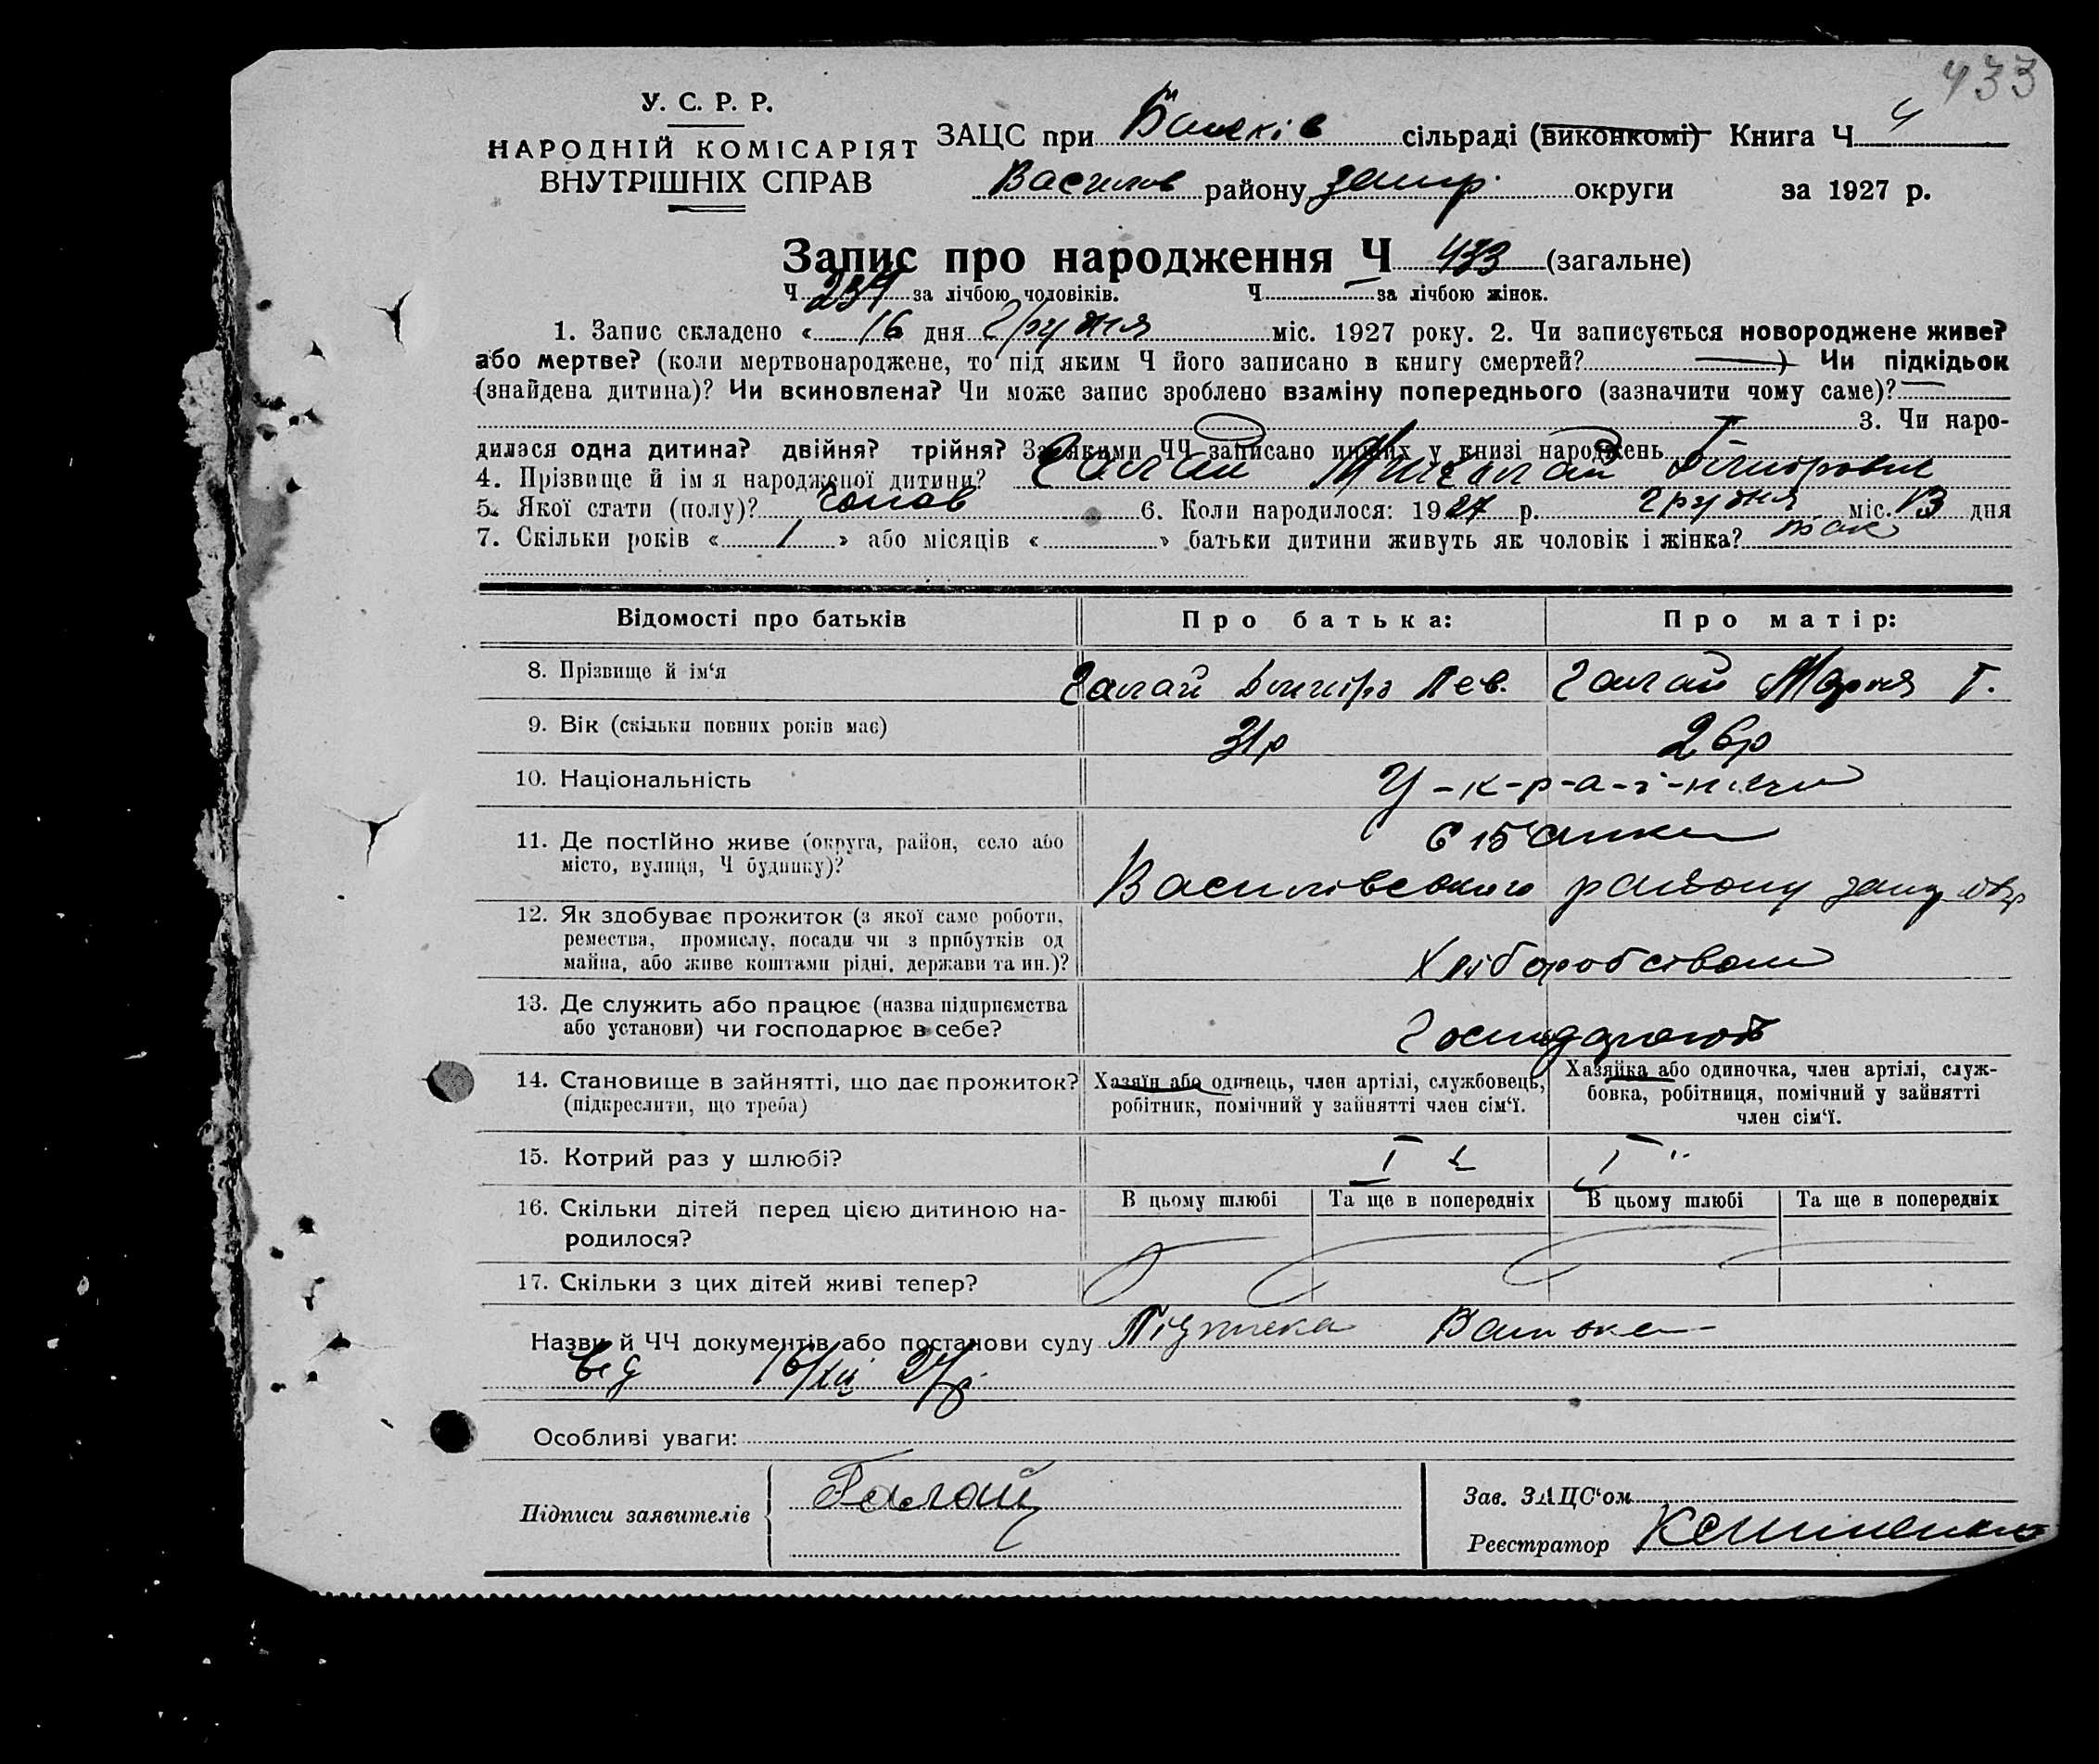 433
У. С. Р. Р.
НАРОДНІЙ КОМІСАРІЯТ
ВНУТРІШНІХ СПРАВ
ЗАЦС при сільраді (виконкомі) Книга Ч 4
Василів району Запор. округи за 1927 р.
Запис про народження Ч 433 (загальне)
Ч 234 за лічбою чоловіків. Ч — за лічбою жінок.
1. Запис складено « 16 дня Грудня міс. 1927 року. 2. Чи записується новороджене живе?
або мертве? (коли мертвонароджене, то під яким Ч його записано в книгу смертей? —) Чи підкідьок
(знайдена дитина)? Чи всиновлена? Чи може запис зроблено взаміну попереднього (зазначити чому саме)? —
3. Чи наро-
дилася одна дитина? двійня? трійня? За якими ЧЧ записано инших у книзі народжень
4. Прізвище й ім я народженої дитини? Галай Миколай
5. Якої стати (полу)? чолов 6. Коли народилося: 1927 р. грудня міс. 13 дня
7. Скільки років « 1 » або місяців « » батьки дитини живуть як чоловік і жінка? так
Відомості про батьків Про батька: Про матір:
8. Прізвище й ім‘я Галай Дмитро Лев. Галай Мария Т.
9. Вік (скільки повних років має) 31 р 26 р
10. Національність У-к-р-а-ї-нці
11. Де постійно живе (округа, район, село або
місто, вулиця, Ч будинку)?
Василівського району запор окр
12. Як здобуває прожиток (з якої саме роботи,
ремества, промислу, посади чи з прибутків од
майна, або живе коштами рідні, держави та ин.)? Хліборобством
13. Де служить або працює (назва підприємства
або установи) чи господарює в себе? Господарюють
14. Становище в зайнятті, що дає прожиток?
(підкреслити, що треба)
Хазяїн або одинець, член артілі, службовець,
робітник, помічний у зайнятті член сім‘ї.
Хазяйка або одиночка, член артілі, служ-
бовка, робітниця, помічний у зайнятті
член сім‘ї.
15. Котрий раз у шлюбі? I I "
16. Скільки дітей перед цією дитиною на-
родилося?
В цьому шлюбі Та ще в попередніх В цьому шлюбі Та ще в попередніх
17. Скільки з цих дітей живі тепер?
Назви й ЧЧ документів або постанови суду Підписка Батька
від 16/XII 27 р.
Особливі уваги:
Підписи заявителів Галай
Зав. ЗАЦС‘ом
Реєстратор